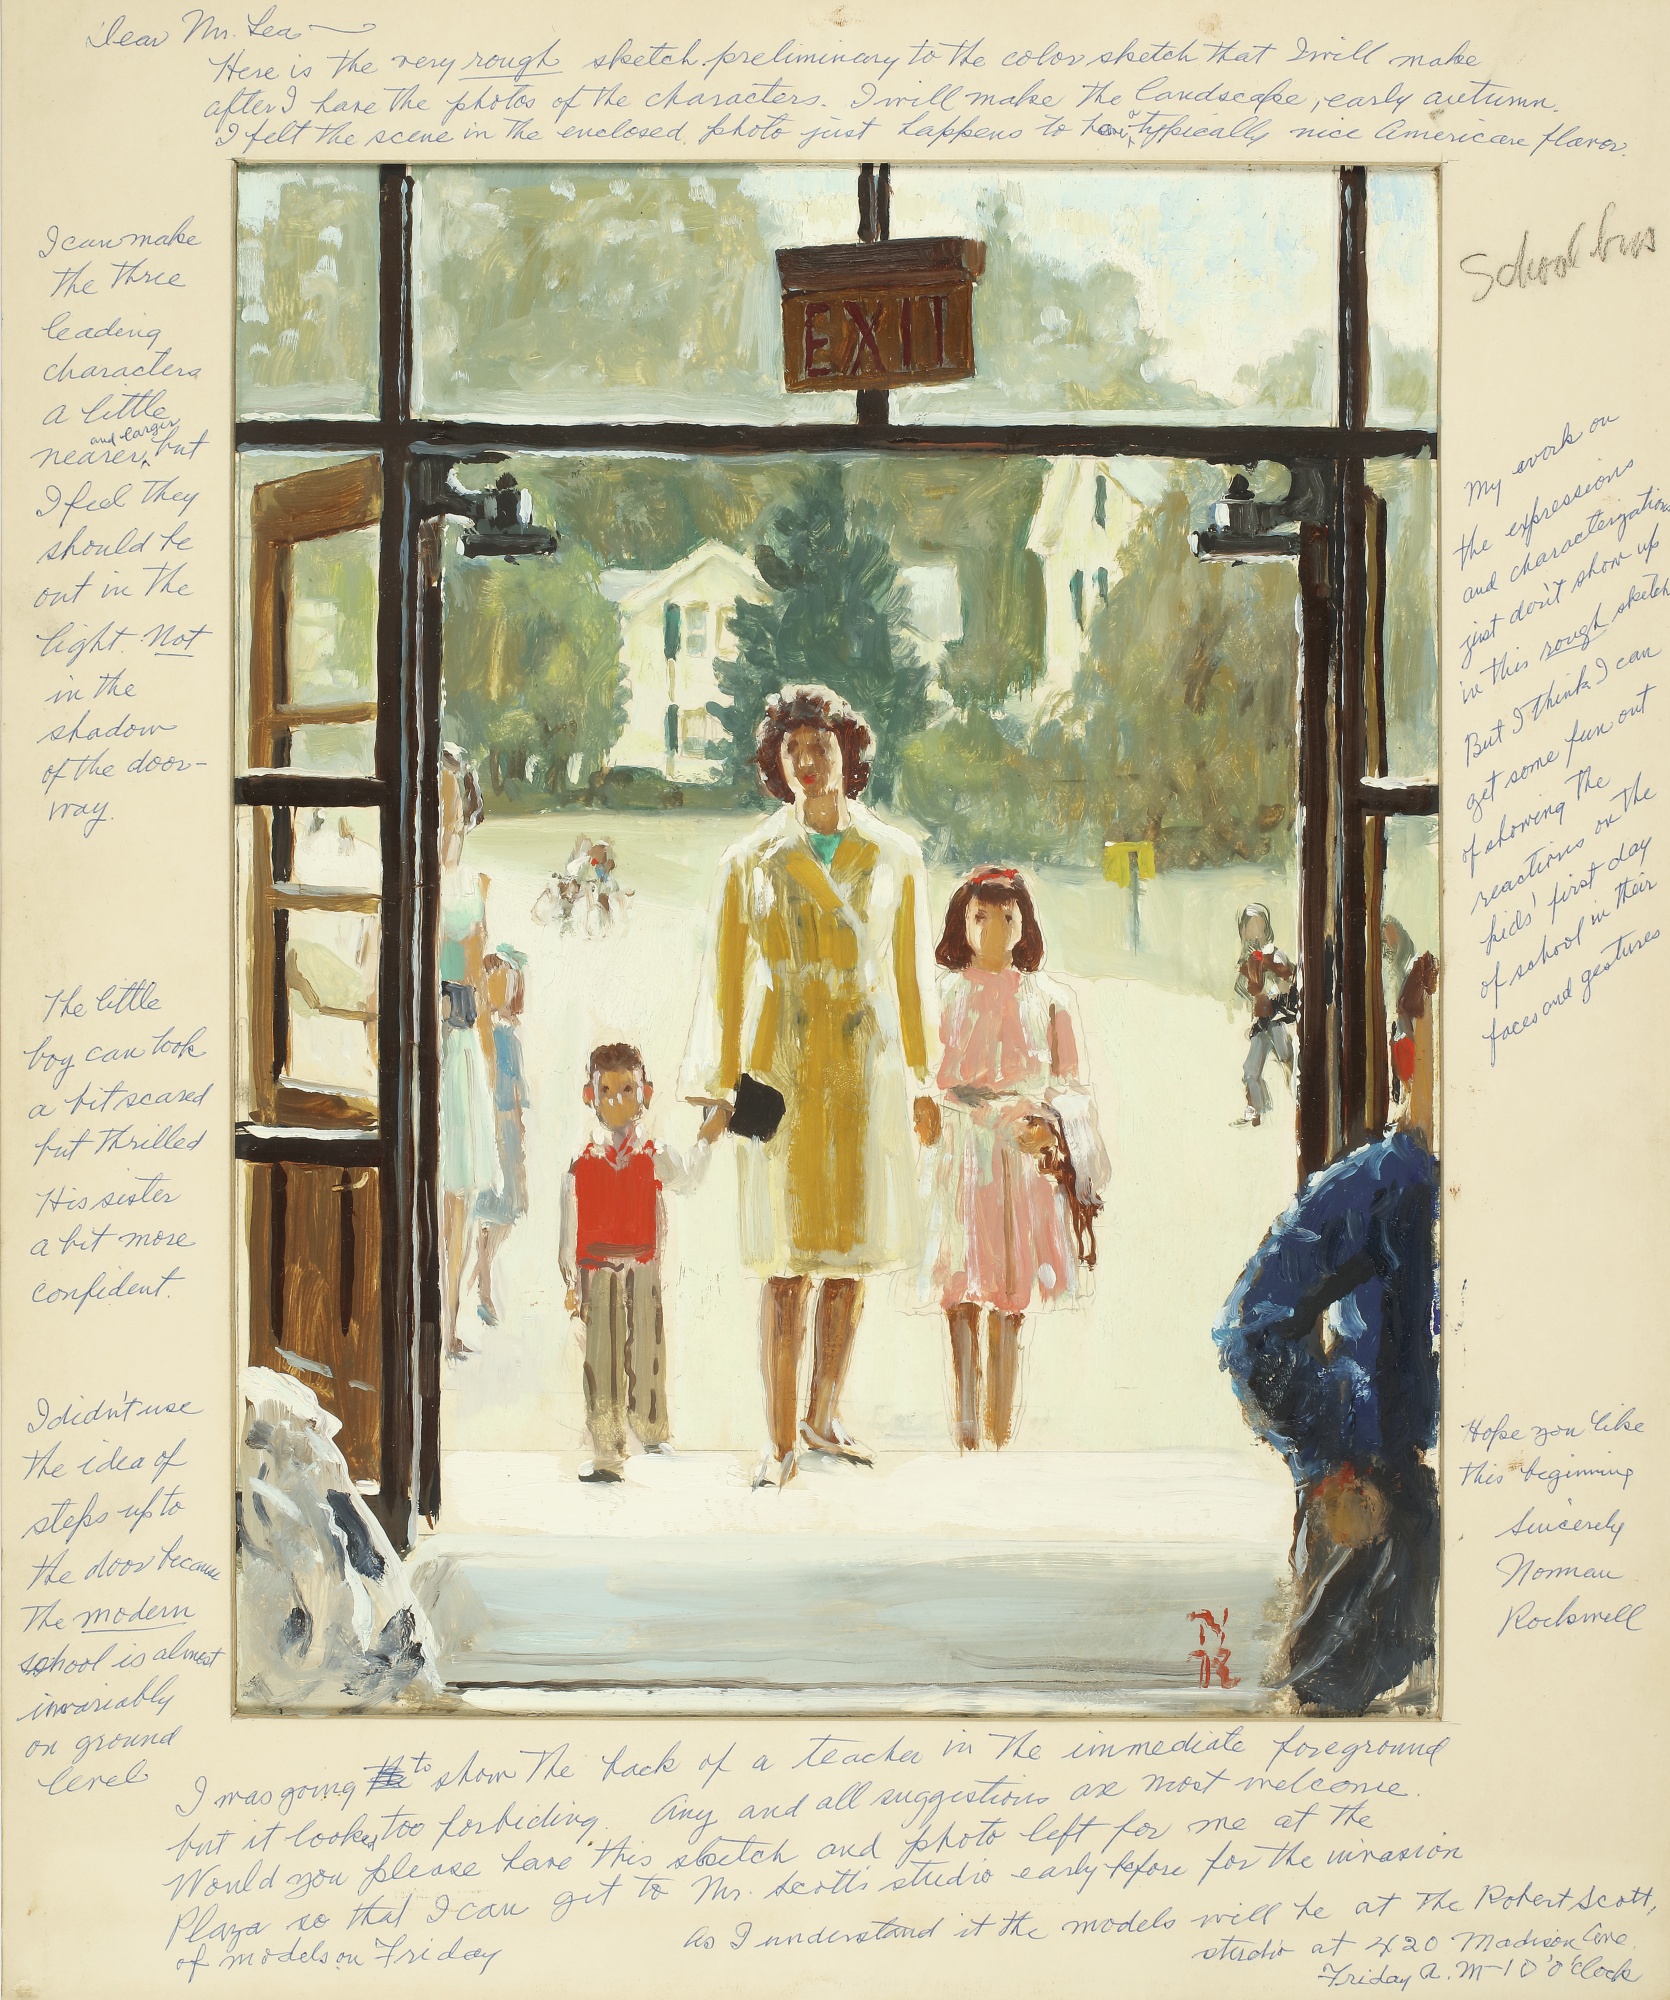 Dear Mr. Lea
Here is the very rough sketch preliminary to the color sketch that I will make
after I have the photos of the characters. I will make the landscape, early autumn.
I felt the scene in the enclosed photo just happens to have a typically nice American flavor.
I can make
the three
leading
characters
a little
nearer and larger, but
I feel they
should be
out in the
light. Not
in the
shadow
of the door-
way.
The little
boy can look
a bit scared
but thrilled
His sister
a bit more
confident.
I didn't use
the idea of
steps up to
the door because
the modern
school is almost
invariably
on ground
level
EXIT
NR
School bus
My work on
the expressions
and characterizations
just don't show up
in this rough sketch
But I think I can
get some fun out
of showing the
reactions on the
kids' first day
of school in their
faces and gestures
Hope you like
this beginning
Sincerely
Norman
Rockwell
I was going to show the back of a teacher in the immediate foreground
but it looked too forbiding. Any and all suggestions are most welcome.
Would you please have this sketch and photo left for me at the
Plaza so that I can get to Mr. Scott's studio early before for the invasion
of models on Friday
As I understand it the models will be at the Robert Scott,
studio at 420 Madison Ave.
Friday A.M-10 O'clock